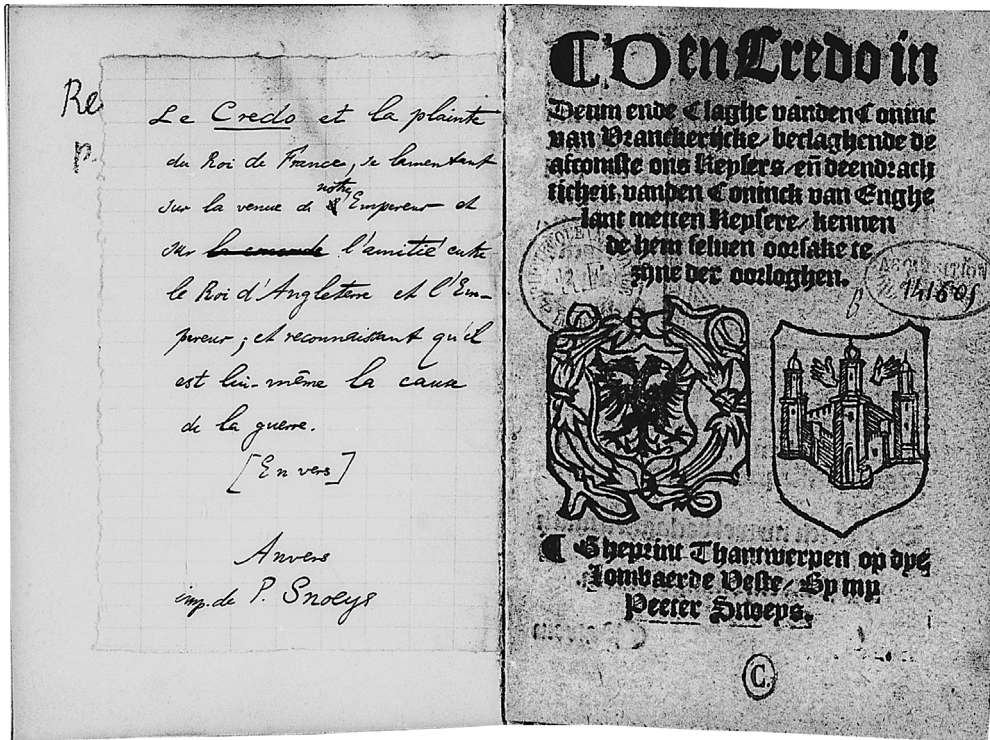 Re
p.
Le Credo et la plainte
du Roi de France, se lamentant
sur la venue de notre Empereur et
sur la l'amitié entre
le Roi d'Angleterre et l'Em-
pereur ; et reconnaissant qu'il
est lui-même la cause
de la guerre.
[En vers]
Anvers
imp. de P. Snoeys
Den Credo in
Deum ende Claghe vanden Coninc
van Vranckerijcke / beclaghende de
afcomste ons Keysers / en̄ deendrach
ticheit vanden Coninck van Enghe
lant metten Keysere / kennen
de hem seluen oorsake te
zijne der oorloghen.
ACQUISITION
141605
B
Gheprint Thantwerpen op dye
Lombaerde Veste / By my
Peeter Snoeys.
C.